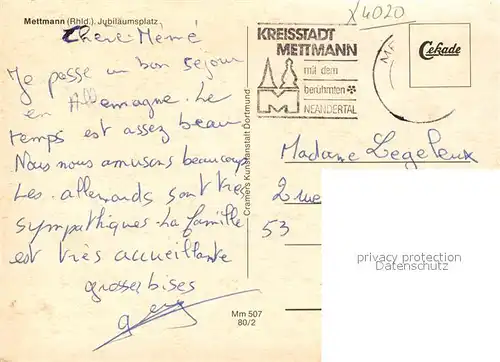 Mettmann (Rhld.). Jubiläumsplatz
Chère Mémé
Je passe un bon séjour
en Allemagne. Le
temps est assez beau
Nous nous amusons beaucoup
Les allemands sont très
sympathiques. La famille
est très accueillante
grosses bises
Mm 507
80/2
Cramers Kunstanstalt Dortmund
X4020
KREISSTADT
METTMANN
mit dem
berühmten
NEANDERTAL
Cekade
Madame Legeleux
2 rue
53
privacy protection
Datenschutz